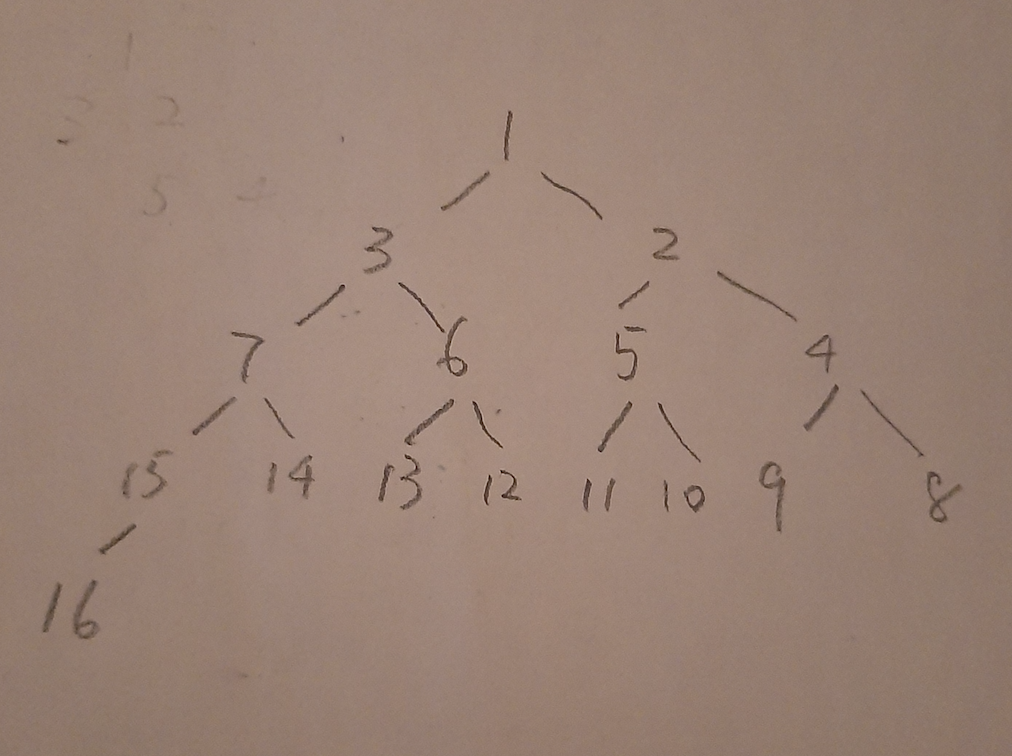 1
3 2
7 6 5 4
15 14 13 12 11 10 9 8
16
1
2
5 4